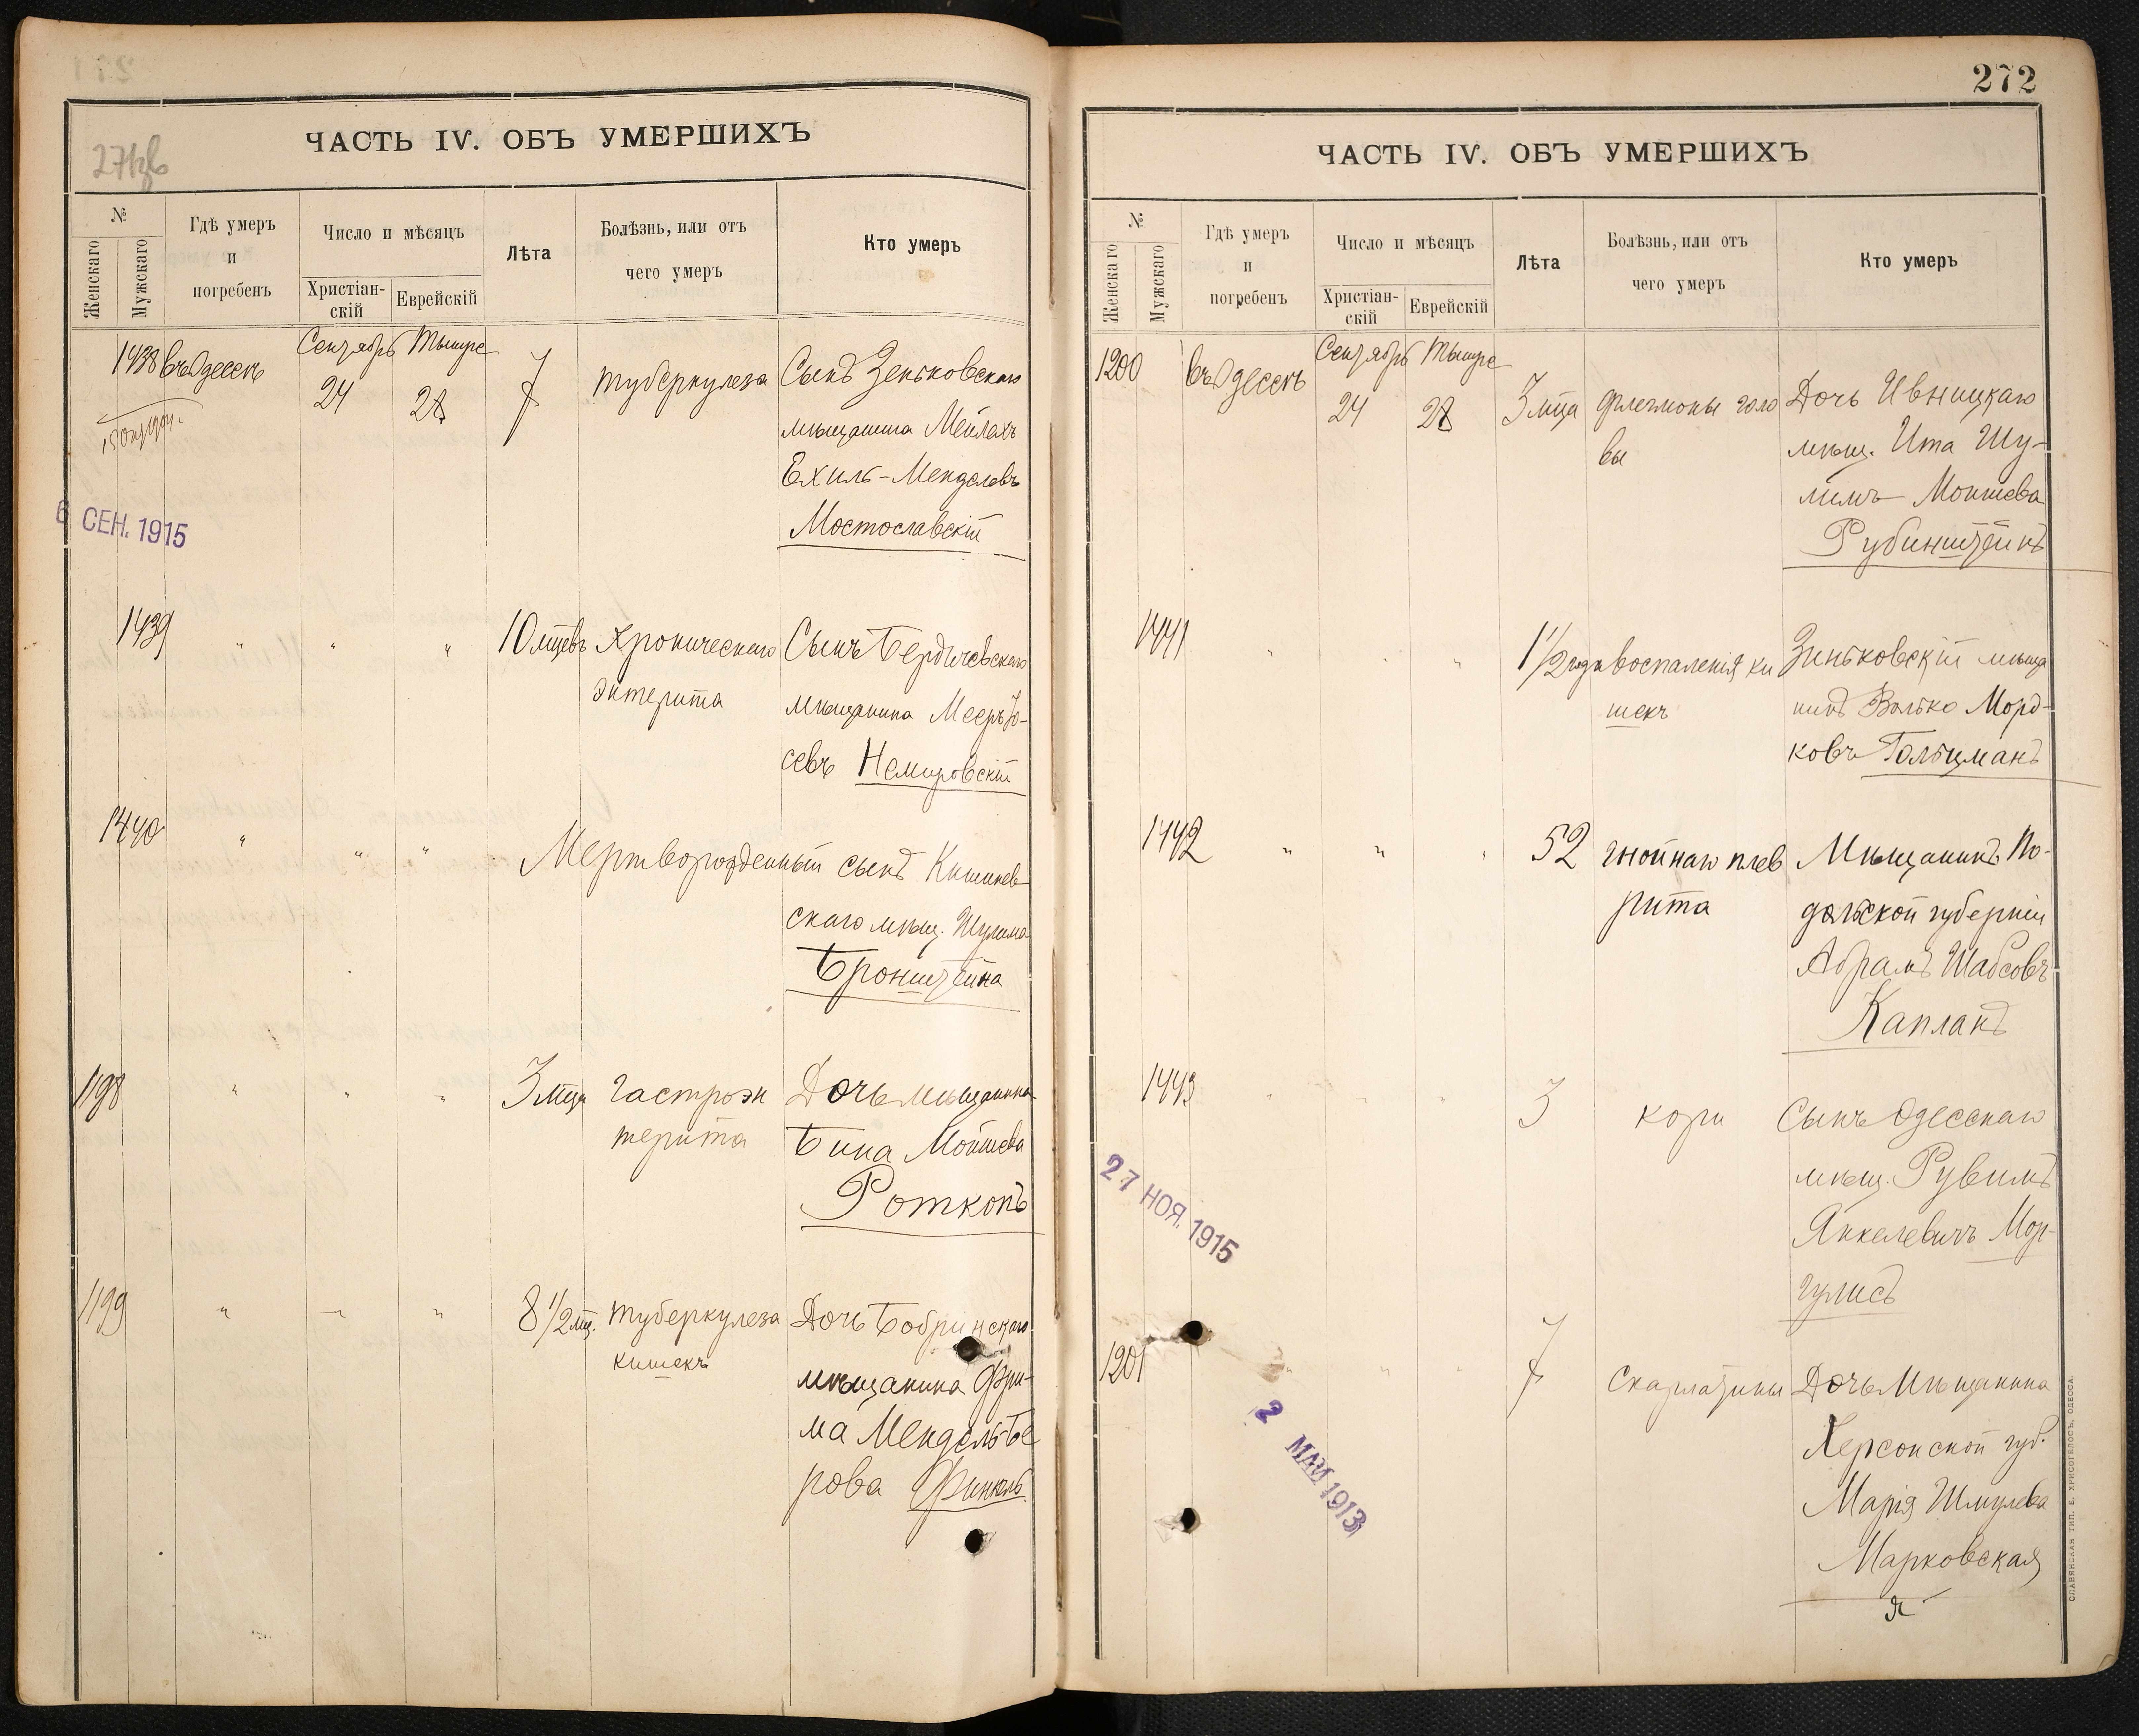 ЧАСТЬ IV. ОБЪ УМЕРШИХЪ
№
Женскаго
Мужскаго
Гдѣ умеръ
и
погребенъ
Число и мѣсяцъ
Христіан-
скій
Еврейскій
Лѣта
Болѣзнь, или отъ
чего умеръ
Кто умеръ
1438 въ Одессѣ
Сентябрь
24
Тышре
28
7
туберкулеза
Сынъ Зеньковскаго
мѣщанина Мейлахъ
Ехиль-Менделевъ
Мостославскій
6 СЕН. 1915
1439
"
"
"
10 мцевъ
Хроническаго
энтерита
Сынъ Бердичевскаго
мѣщанина Мееръ Іо-
севъ Немировскій
1440
"
"
"
Мертворожденный сынъ Кишинев-
скаго мѣщ. Шулима
Бронштейна
1198
"
"
"
3 мца
гастроэн
терита
Дочь мѣщанина
Бина Мойшева
Роткопъ
1199
"
"
"
8 1/2 мц.
туберкулеза
кишекъ
Дочь Бобринскаго
мѣщанина Фри-
ма Мендель-Бе
рова Финкль
272
ЧАСТЬ IV. ОБЪ УМЕРШИХЪ
№
Женскаго
Мужскаго
Гдѣ умеръ
и
погребенъ
Число и мѣсяцъ
Христіан-
скій
Еврейскій
Лѣта
Болѣзнь, или отъ
чего умеръ
Кто умеръ
1200
въ Одессѣ
Сентябрь
24
Тышре
28
3 мца
флегмоны голо
вы
Дочь Ивницкаго
мѣщ. Ита Шу-
лимъ-Мошева
Рубинштейнъ
1441
"
"
"
1 1/2 года
воспаленія ки
шекъ
Зиньковскій мѣща
нинъ Волько Морд-
ковъ Гольцманъ
1442
"
"
"
52
гнойнаго плев
рита
Мѣщанинъ По-
дольской губерніи
Абрамъ Шабсовъ
Капланъ
1443
"
"
"
3
кори
Сынъ Одесскаго
мѣщ. Рувимъ
Янкелевичъ Мор-
гулисъ
27 НОЯ. 1915
1201
"
"
"
7
Скарлатины
Дочь Мѣщанина
Херсонской губ.
Марія Шмулева
Марковская
2 МАЙ 1913
СЛАВЯНСКАЯ ТИП. Е. ХРИСОГЕЛОСЪ, ОДЕССА.